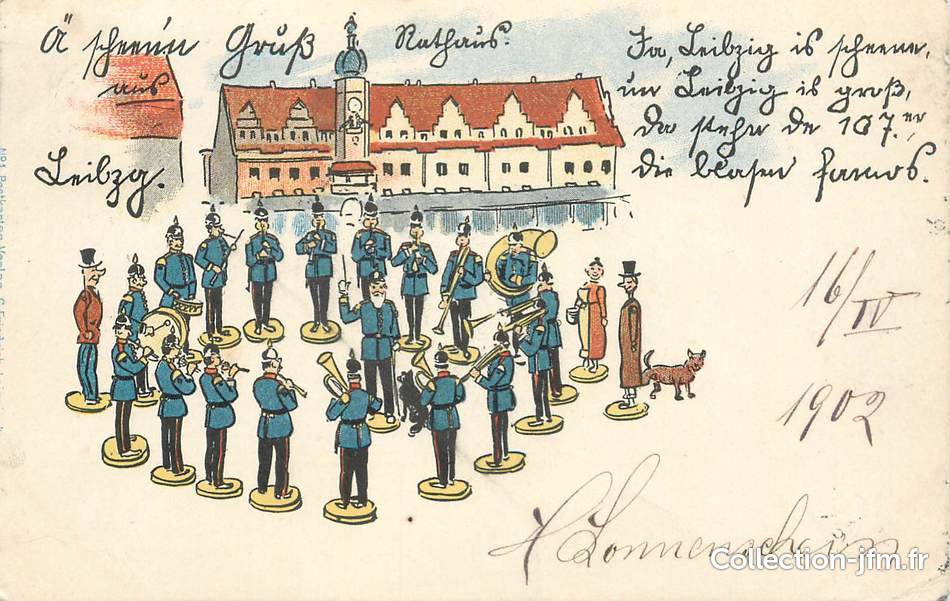 Ä scheen'n Gruß
aus
Leibzg.
Rathaus.
Ja, Leibzig is scheene,
un Leibzig is groß,
da stehn de 107.er,
die blasen famos.
16/IV
1902
Sonnenschein
Collection-jfm.fr